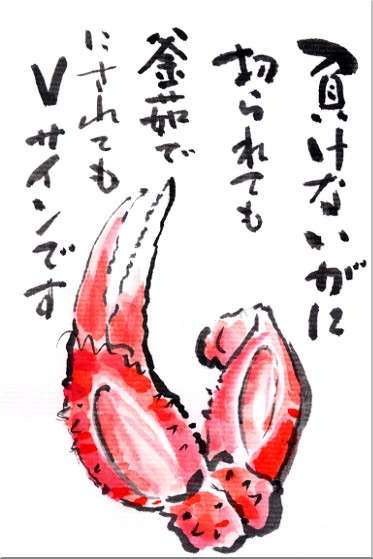 負けないがに
切られても
釜茹で
にされても
Vサインです